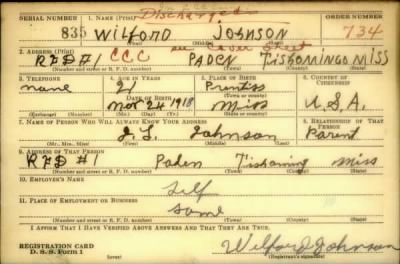 Discharged
SERIAL NUMBER 1. NAME (Print) ORDER NUMBER
835 WILFORD JOHNSON 734
see Cover Sheet
2. ADDRESS (Print)
RFD#1 CCC PADEN TISHOMINGO MISS
(Number and street or R. F. D. number) (Town) (County) (State)
3. TELEPHONE 4. AGE IN YEARS 5. PLACE OF BIRTH 6. COUNTRY OF CITIZENSHIP
none 21 Prentiss
DATE OF BIRTH (Town or county)
Nov 24 1918 Miss U.S.A.
(Exchange) (Number) (Mo.) (Day) (Yr.) (State or country)
7. NAME OF PERSON WHO WILL ALWAYS KNOW YOUR ADDRESS 8. RELATIONSHIP OF THAT PERSON
Johnson Parent
(Mr., Mrs., Miss) (First) (Middle) (Last)
9. ADDRESS OF THAT PERSON
RFD #1 Paden Tishoming Miss
(Number and street or R. F. D. number) (Town) (County) (State)
10. EMPLOYER'S NAME
Self
11. PLACE OF EMPLOYMENT OR BUSINESS
Same
(Number and street or R. F. D. number) (Town) (County) (State)
I AFFIRM THAT I HAVE VERIFIED ABOVE ANSWERS AND THAT THEY ARE TRUE.
REGISTRATION CARD Wilford Johnson
D. S. S. Form 1 (Registrant's signature)